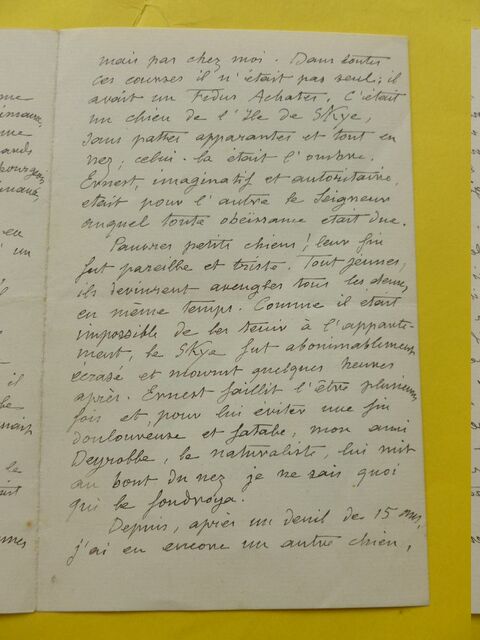 mais par chez moi. Dans toutes
ces courses il n'était pas seul; il
avait un Fedus Achates. C'était
un chien de l'île de Skye,
sans pattes apparantes et tout en
nez; celui-là était l'ombre.
Ernest, imaginatif et autoritaire,
etait pour l'autre le Seigneur
auquel toute obéissance était due.
Pauvres petits chiens! leur fin
fut pareille et triste. Tout jeunes,
ils devinrent aveugles tous les deux,
en même temps. Comme il était
impossible de les tenir à l'apparte-
ment, le Skye fut abominablement
ecrasé et mourut quelques heures
après. Ernest faillit l'être plusieurs
fois et, pour lui eviter une fin
douloureuse et fatale, mon ami
Deyrolle, le naturaliste, lui mit
au bout du nez je ne sais quoi
qui le foudroya.
Depuis, après un deuil de 15 ans,
j'ai eu encore un autre chien,